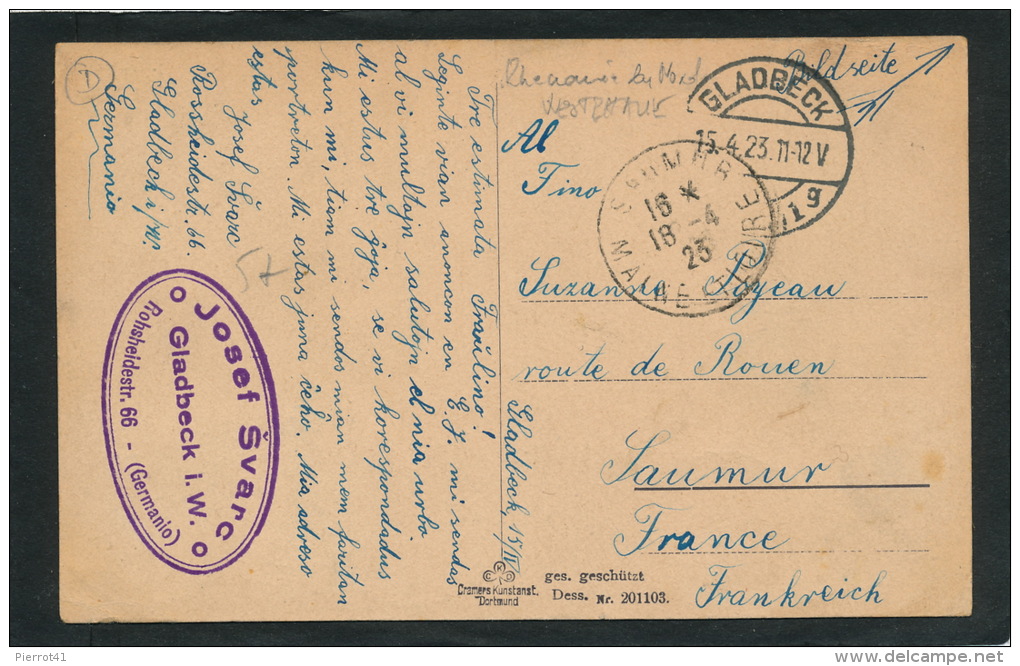 Gladbeck, 15/IV
Tre estimata Fraŭlino!
Leginte vian anoncon en E. J. mi sendas
al vi multajn salutojn el nia urbo.
Mi estus tre ĝoja, se vi korespondadus
kun mi, tiam mi sendos mian mem faritan
portreton. Mi estas juna ĉeĥo. Mia adreso
estas
Josef Švarc
Rossheidestr. 66.
Gladbeck i/W.
Germanio
A
57
o Josef Švarc o
Gladbeck i. W.
Rohsheidestr. 66 - (Germanio)
Bildseite
WESTPHALIE
GLADBECK
15.4.23.11-12V
1g
SAUMUR
16 *
18 -4
23
MAINE ET LOIRE
Al
Fino
Suzanne Poyeau
route de Rouen
Saumur
France
Frankreich
Cramers Kunstanst.
Dortmund
ges. geschützt
Dess. Nr. 201103.
Pierrot41
delcampe.net